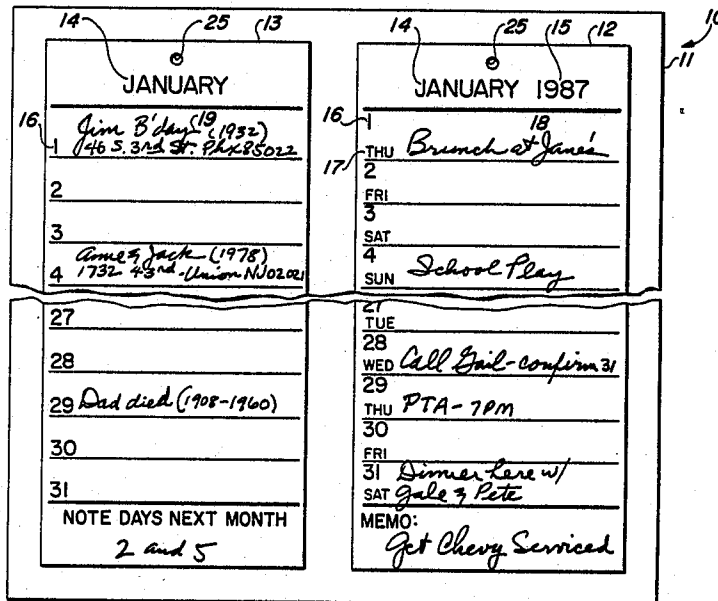 14 25 13
JANUARY
16 19
Jim B'day (1932)
1 46 S. 3rd St. Phx 85022
2
3
Anne & Jack (1978)
4 1732 43rd - Union NJ 02021
27
28
29 Dad died (1908-1960)
30
31
NOTE DAYS NEXT MONTH
2 and 5
14 25 15 12 10
11
JANUARY 1987
16 1 18
17 THU Brunch at Jane's
2
FRI
3
SAT
4
SUN School Play
27
TUE
28
WED Call Gail - confirm 31
29
THU PTA - 7PM
30
FRI
31 Dinner here w/
SAT Gale & Pete
MEMO:
Get Chevy Serviced